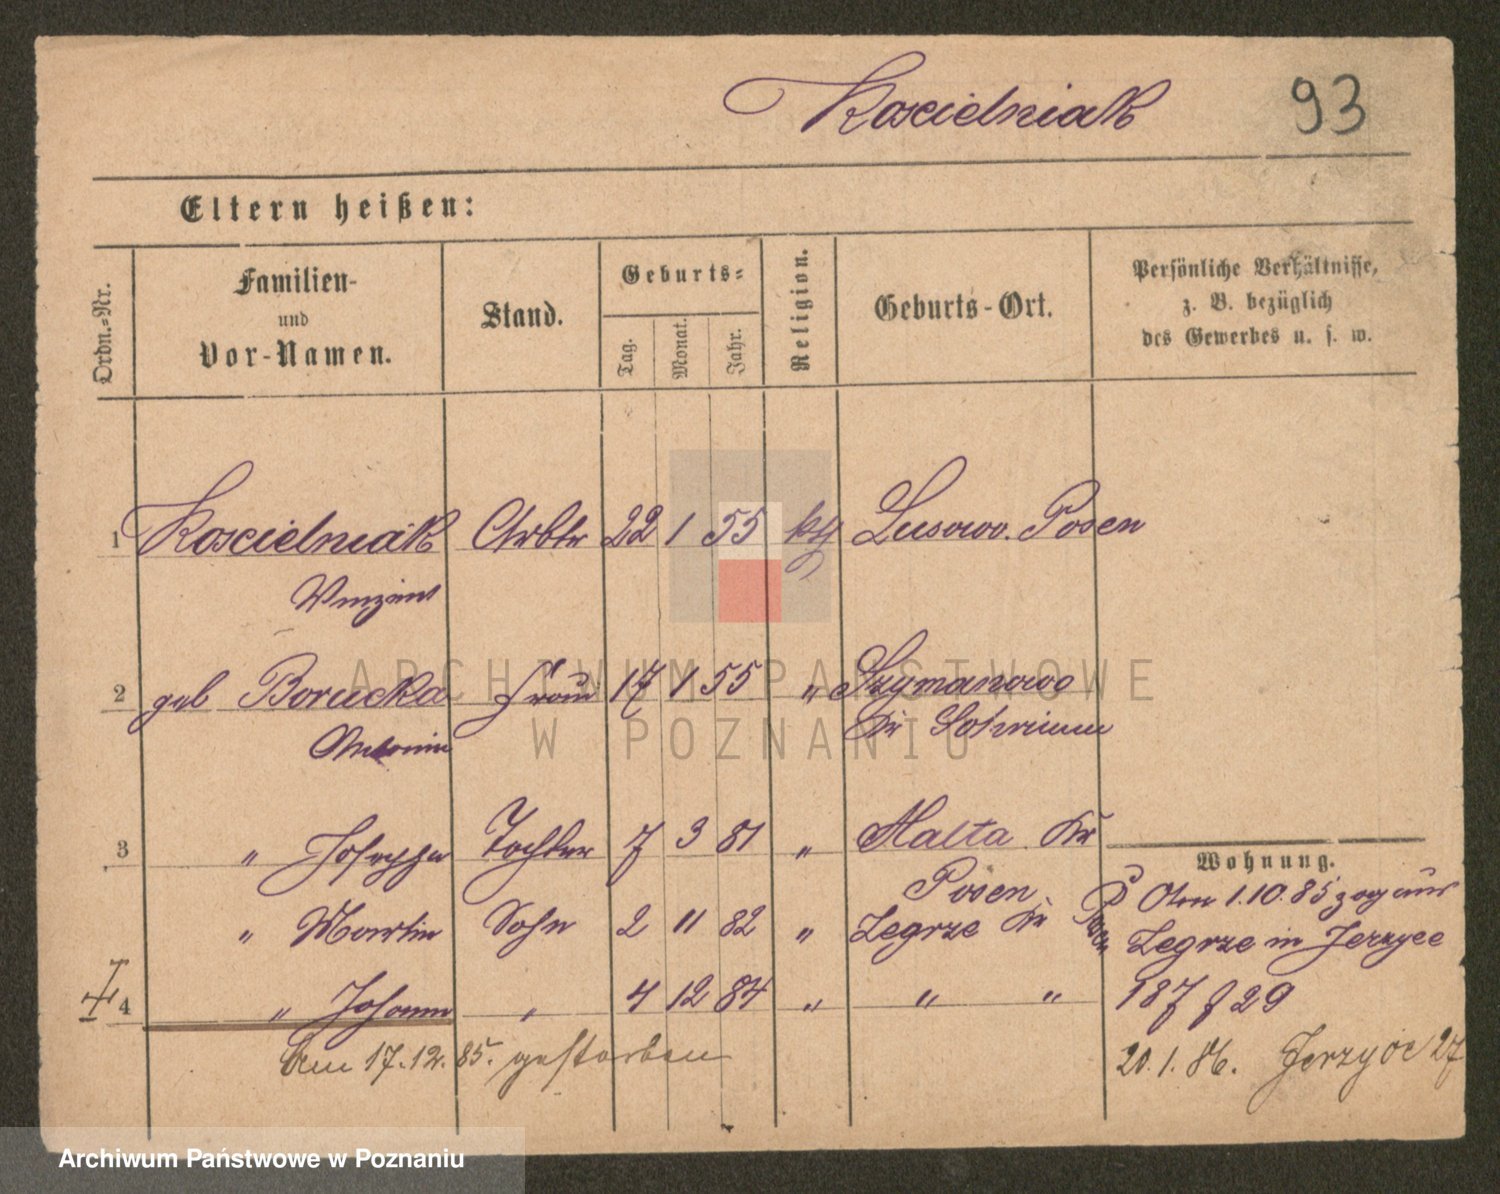 Koscielniak 93
Eltern heißen:
Ordn.-Nr.
Familien-
und
Vor-Namen.
Stand.
Geburts-
Tag.
Monat.
Jahr.
Religion.
Geburts-Ort.
Persönliche Verhältnisse,
z. B. bezüglich
des Gewerbes u. s. w.
1 Koscielniak Arbtr 22 1 55 kth Lusowo. Posen
Vinzent
2 geb Borucka Frau 17 1 55 " Szymanowo
Antonie Kr
3 " Josepha Tochter 7 3 81 " Malta Kr
Posen
" Martin Sohn 2 11 82 " Zegrze Kr Posen
4 " Johann " 4 12 84 " " "
Am 17.12.85. gestorben
Wohnung.
Am 1.10.85 zog aus
Zegrze in Jerzyce
187 f 29
20.1.86. Jerzyce 27
ARCHIWUM PAŃSTWOWE
W POZNANIU
Archiwum Państwowe w Poznaniu